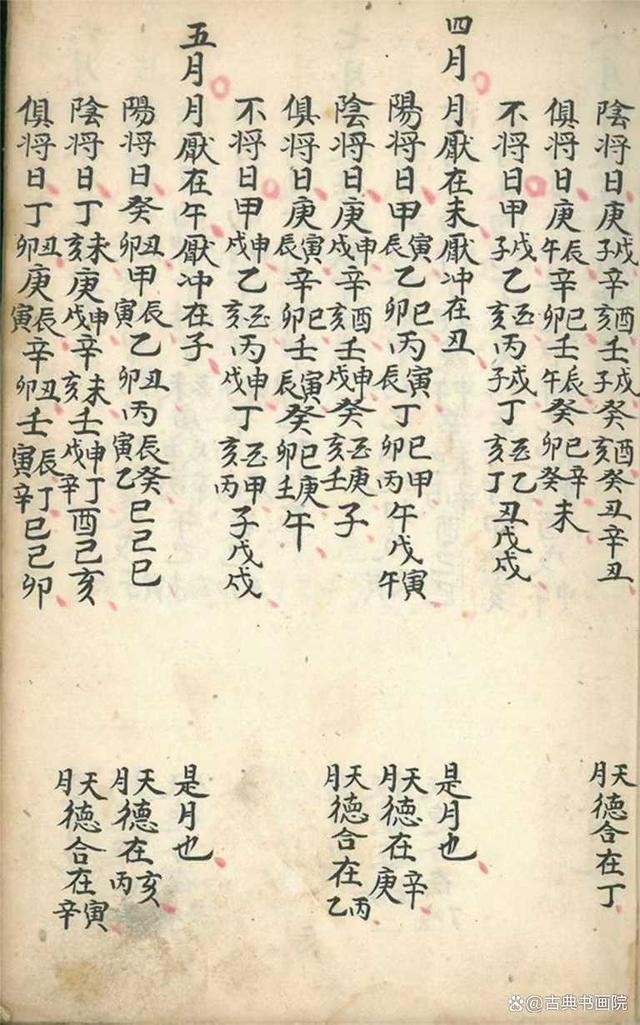 陰将日庚戌子辛酉亥壬戌子癸酉亥癸丑辛丑
天月德合在丁
俱将日庚辰午辛巳卯壬辰午癸巳卯辛癸未
不将日甲戌子乙丑亥丙戌子丁丑亥乙丁丑戊戌
四月月厭在未厭冲在丑
是月也
陽将日甲寅辰乙巳卯丙寅丁巳卯甲丙午戊寅午
天月德在辛庚
陰将日庚申戌辛酉亥壬申戌癸丑亥庚壬子
天月德合在丙乙
俱将日庚寅辰辛巳卯壬寅辰癸巳卯庚壬午
不将日甲申戌乙丑亥丙申戌丁丑亥甲丙子戊戌
五月月厭在午厭冲在子
是月也
陽将日癸丑卯甲辰寅乙丑卯丙辰寅癸乙巳己巳
天月德在亥丙
陰将日丁未亥庚申戌辛未亥壬申戌丁辛酉己亥
天月德合在寅辛
俱将日丁丑卯庚辰寅辛丑卯壬辰寅丁辛巳己卯
@古典书画院